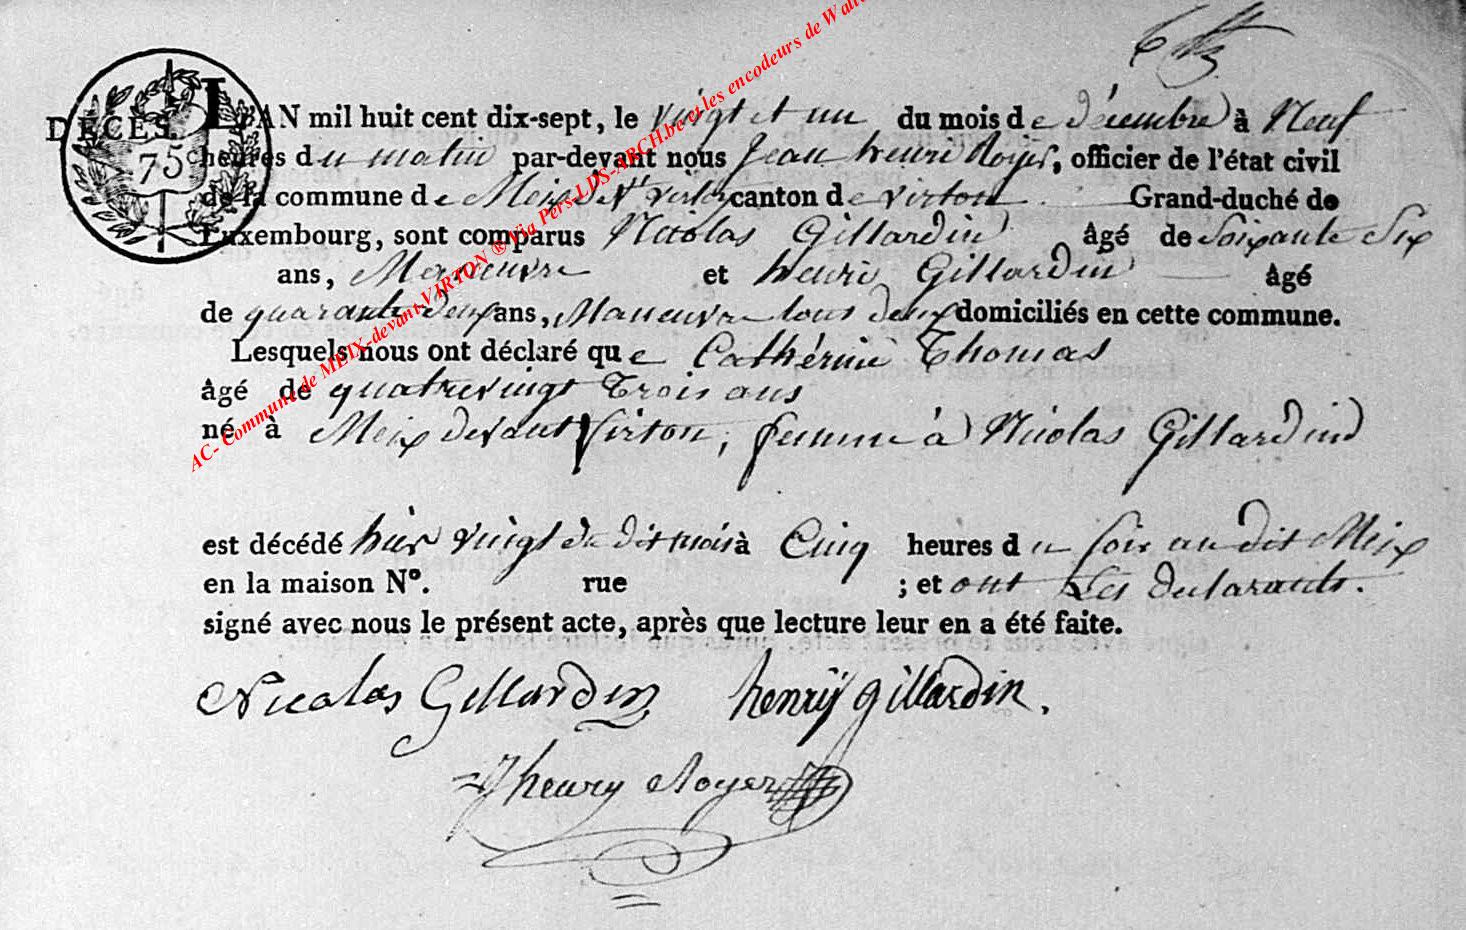 DÉCÈS.
75 c
L'AN mil huit cent dix-sept, le vingt et un du mois de décembre à Neuf
heures du matin par-devant nous Jean henri Royer, officier de l'état civil
de la commune de Meix dvt virton canton de virton Grand-duché de
Luxembourg, sont comparus Nicolas Gillardin âgé de Soixante Six
ans, Maneuvre et henri Gillardin âgé
de quarante deux ans, Maneuvre tous deux domiciliés en cette commune.
Lesquels nous ont déclaré que Cathérine Thomas
âgé de quatrevingt Trois ans
né à Meix devant Virton, femme à Nicolas Gillardin
est décédé hier vingt du dit mois à Cinq heures du soir au dit Meix
en la maison N°. rue ; et ont Les declarants.
signé avec nous le présent acte, après que lecture leur en a été faite.
Nicolas Gillardin henrÿ gillardin.
Jhenry Royer
AC- Commune de MEIX-devant-VIRTON ® Via Pers-LDS-ARCH.be et les encodeurs de